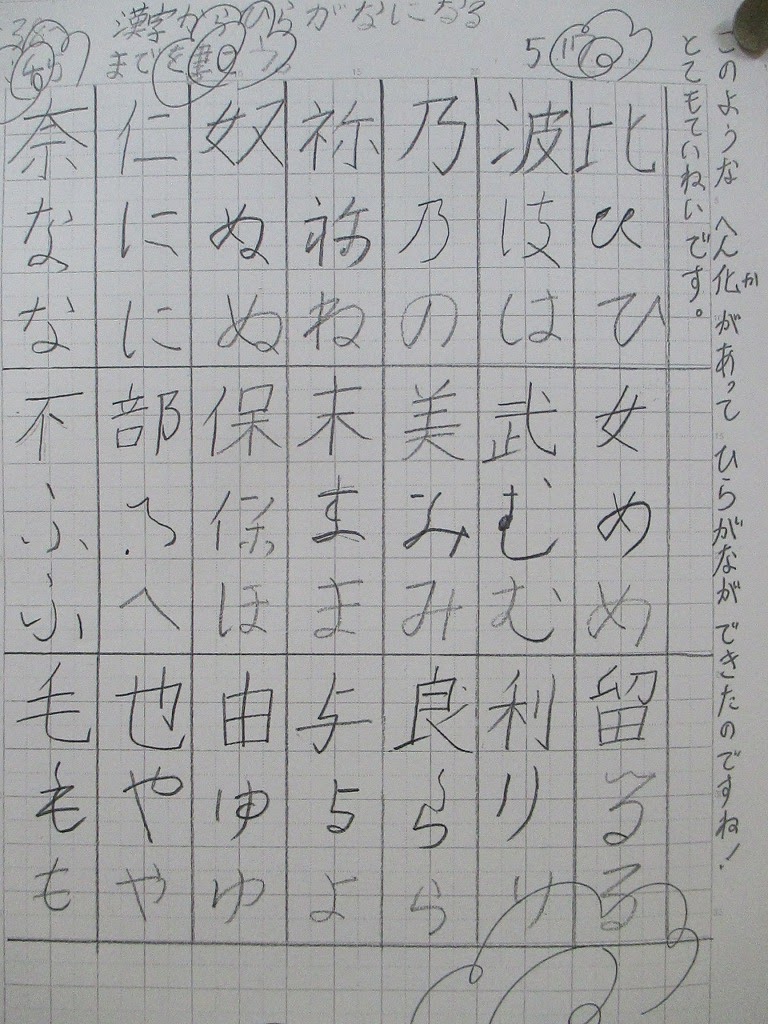 漢字からひらがなになる
までを書
5
奈仁奴祢乃波比
なにぬ祢乃はひ
なにぬねのはひ
不部保末美武女
ふへ保まみむめ
ふへほまみむめ
毛也由与良利留
もやゆよらりる
もやゆよらりる
このようなへん化かがあってひらがなができたのですね!
とてもていねいです。